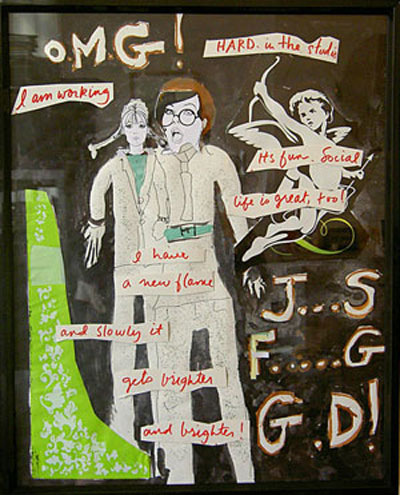 O.M.G!
HARD. in the studio
I am working
It's fun. Social
life is great, too!
I have
a new flame
and slowly it
gets brighter
and brighter!
J...S
F.....G
G.D!